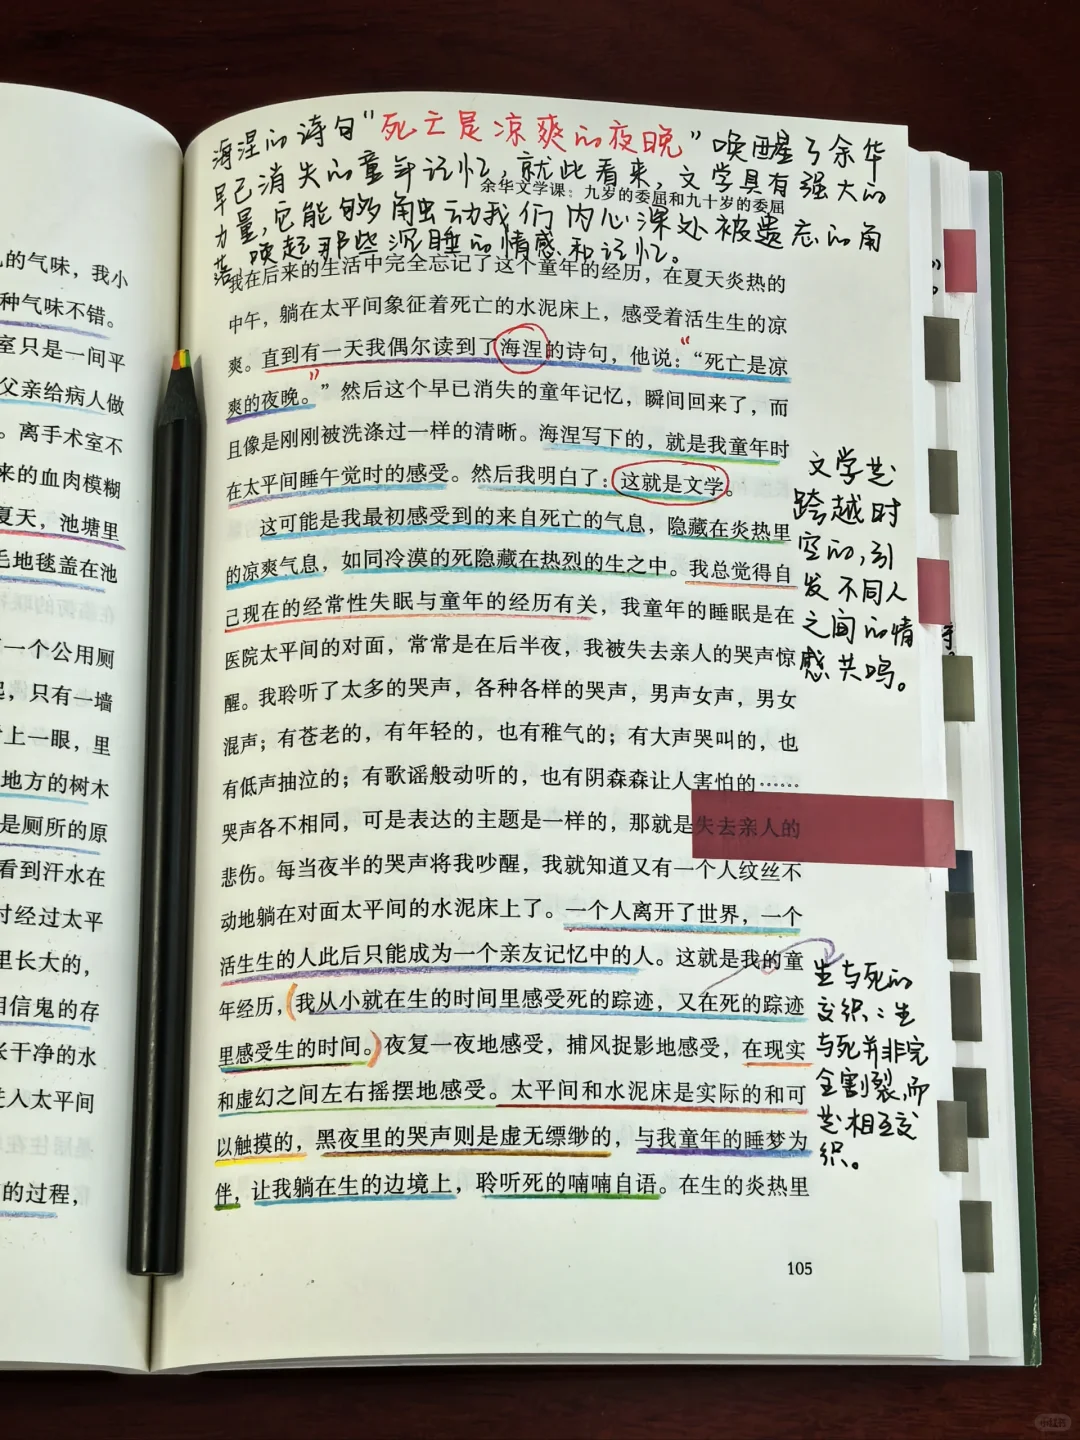 海涅的诗句“死亡是凉爽的夜晚”唤醒了余华
早已消失的童年记忆，就此看来，文学具有强大的
余华文学课：九岁的委屈和九十岁的委屈
力量，它能够触动我们内心深处被遗忘的角
落，唤起那些沉睡的情感和记忆。
我在后来的生活中完全忘记了这个童年的经历，在夏天炎热的
中午，躺在太平间象征着死亡的水泥床上，感受着活生生的凉
爽。直到有一天我偶尔读到了海涅的诗句，他说：“死亡是凉
爽的夜晚。”然后这个早已消失的童年记忆，瞬间回来了，而
且像是刚刚被洗涤过一样的清晰。海涅写下的，就是我童年时
在太平间睡午觉时的感受。然后我明白了：这就是文学。
这可能是我最初感受到的来自死亡的气息，隐藏在炎热里
的凉爽气息，如同冷漠的死隐藏在热烈的生之中。我总觉得自
己现在的经常性失眠与童年的经历有关，我童年的睡眠是在
医院太平间的对面，常常是在后半夜，我被失去亲人的哭声惊
醒。我聆听了太多的哭声，各种各样的哭声，男声女声，男女
混声；有苍老的，有年轻的，也有稚气的；有大声哭叫的，也
有低声抽泣的；有歌谣般动听的，也有阴森森让人害怕的……
哭声各不相同，可是表达的主题是一样的，那就是失去亲人的
悲伤。每当夜半的哭声将我吵醒，我就知道又有一个人纹丝不
动地躺在对面太平间的水泥床上了。一个人离开了世界，一个
活生生的人此后只能成为一个亲友记忆中的人。这就是我的童
年经历，我从小就在生的时间里感受死的踪迹，又在死的踪迹
里感受生的时间。夜复一夜地感受，捕风捉影地感受，在现实
和虚幻之间左右摇摆地感受。太平间和水泥床是实际的和可
以触摸的，黑夜里的哭声则是虚无缥缈的，与我童年的睡梦为
伴，让我躺在生的边境上，聆听死的喃喃自语。在生的炎热里
105
文学是
跨越时
空的，引
发不同人
之间的情
感共鸣。
生与死的
交织：生
与死并非完
全割裂，而
是相互交
织。
的气味，我小
种气味不错。
室只是一间平
父亲给病人做
。离手术室不
来的血肉模糊
夏天，池塘里
毛地毯盖在池
一个公用厕
，只有一墙
上一眼，里
地方的树木
是厕所的原
看到汗水在
时经过太平
里长大的，
相信鬼的存
长干净的水
进入太平间
的过程，
小红书